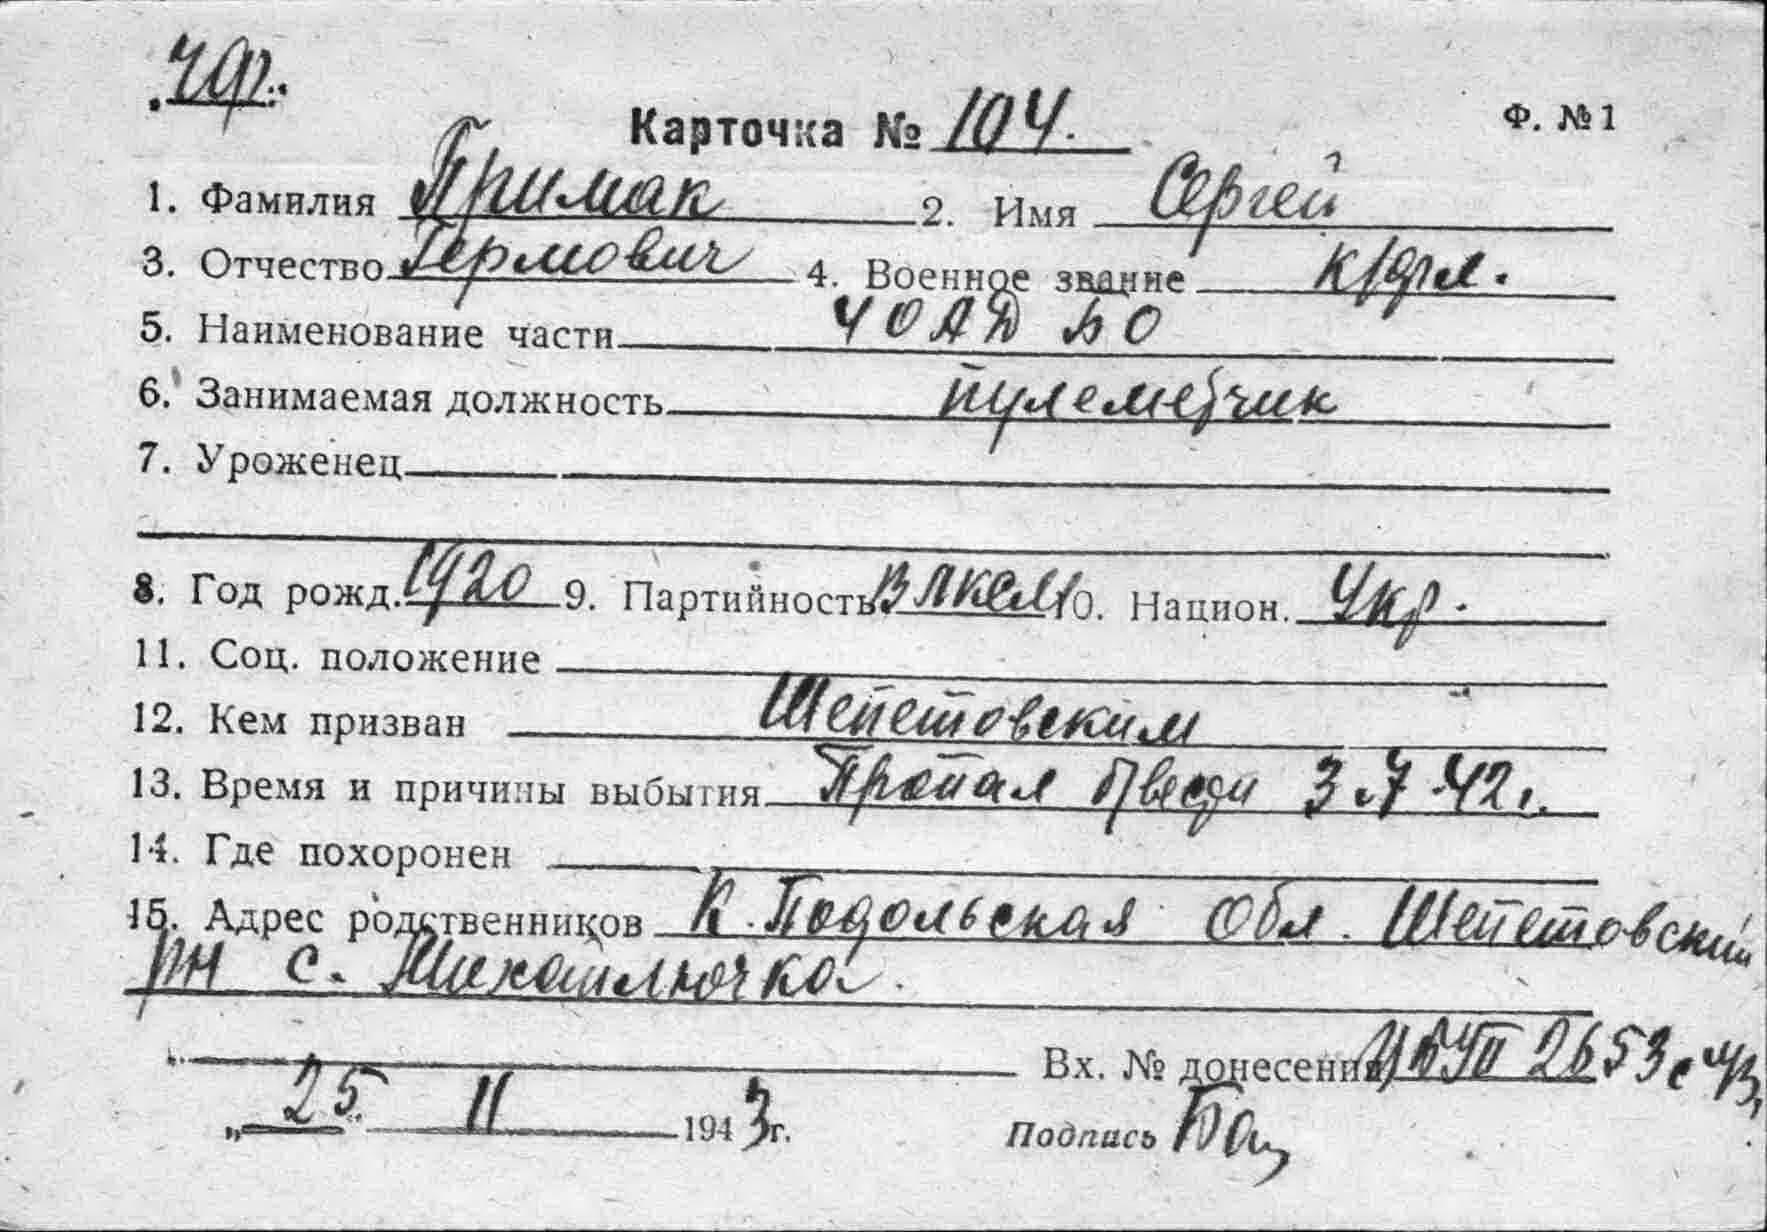 ЧФ.
Карточка № 104. Ф. № 1
1. Фамилия Примак 2. Имя Сергей
3. Отчество Гермович 4. Военное звание к/фл.
5. Наименование части ЧОАД БО
6. Занимаемая должность пулеметчик
7. Уроженец
8. Год рожд. 1920 9. Партийность ВЛКСМ 10. Национ. Укр.
11. Соц. положение
12. Кем призван Шепетовским
13. Время и причины выбытия Пропал б/вести 3.7.42 г.
14. Где похоронен
15. Адрес родственников К. Подольская Обл. Шепетовский
рн с. Михайлючка.
Вх. № донесения 2653с
„ 25. II 1943 г. Подпись